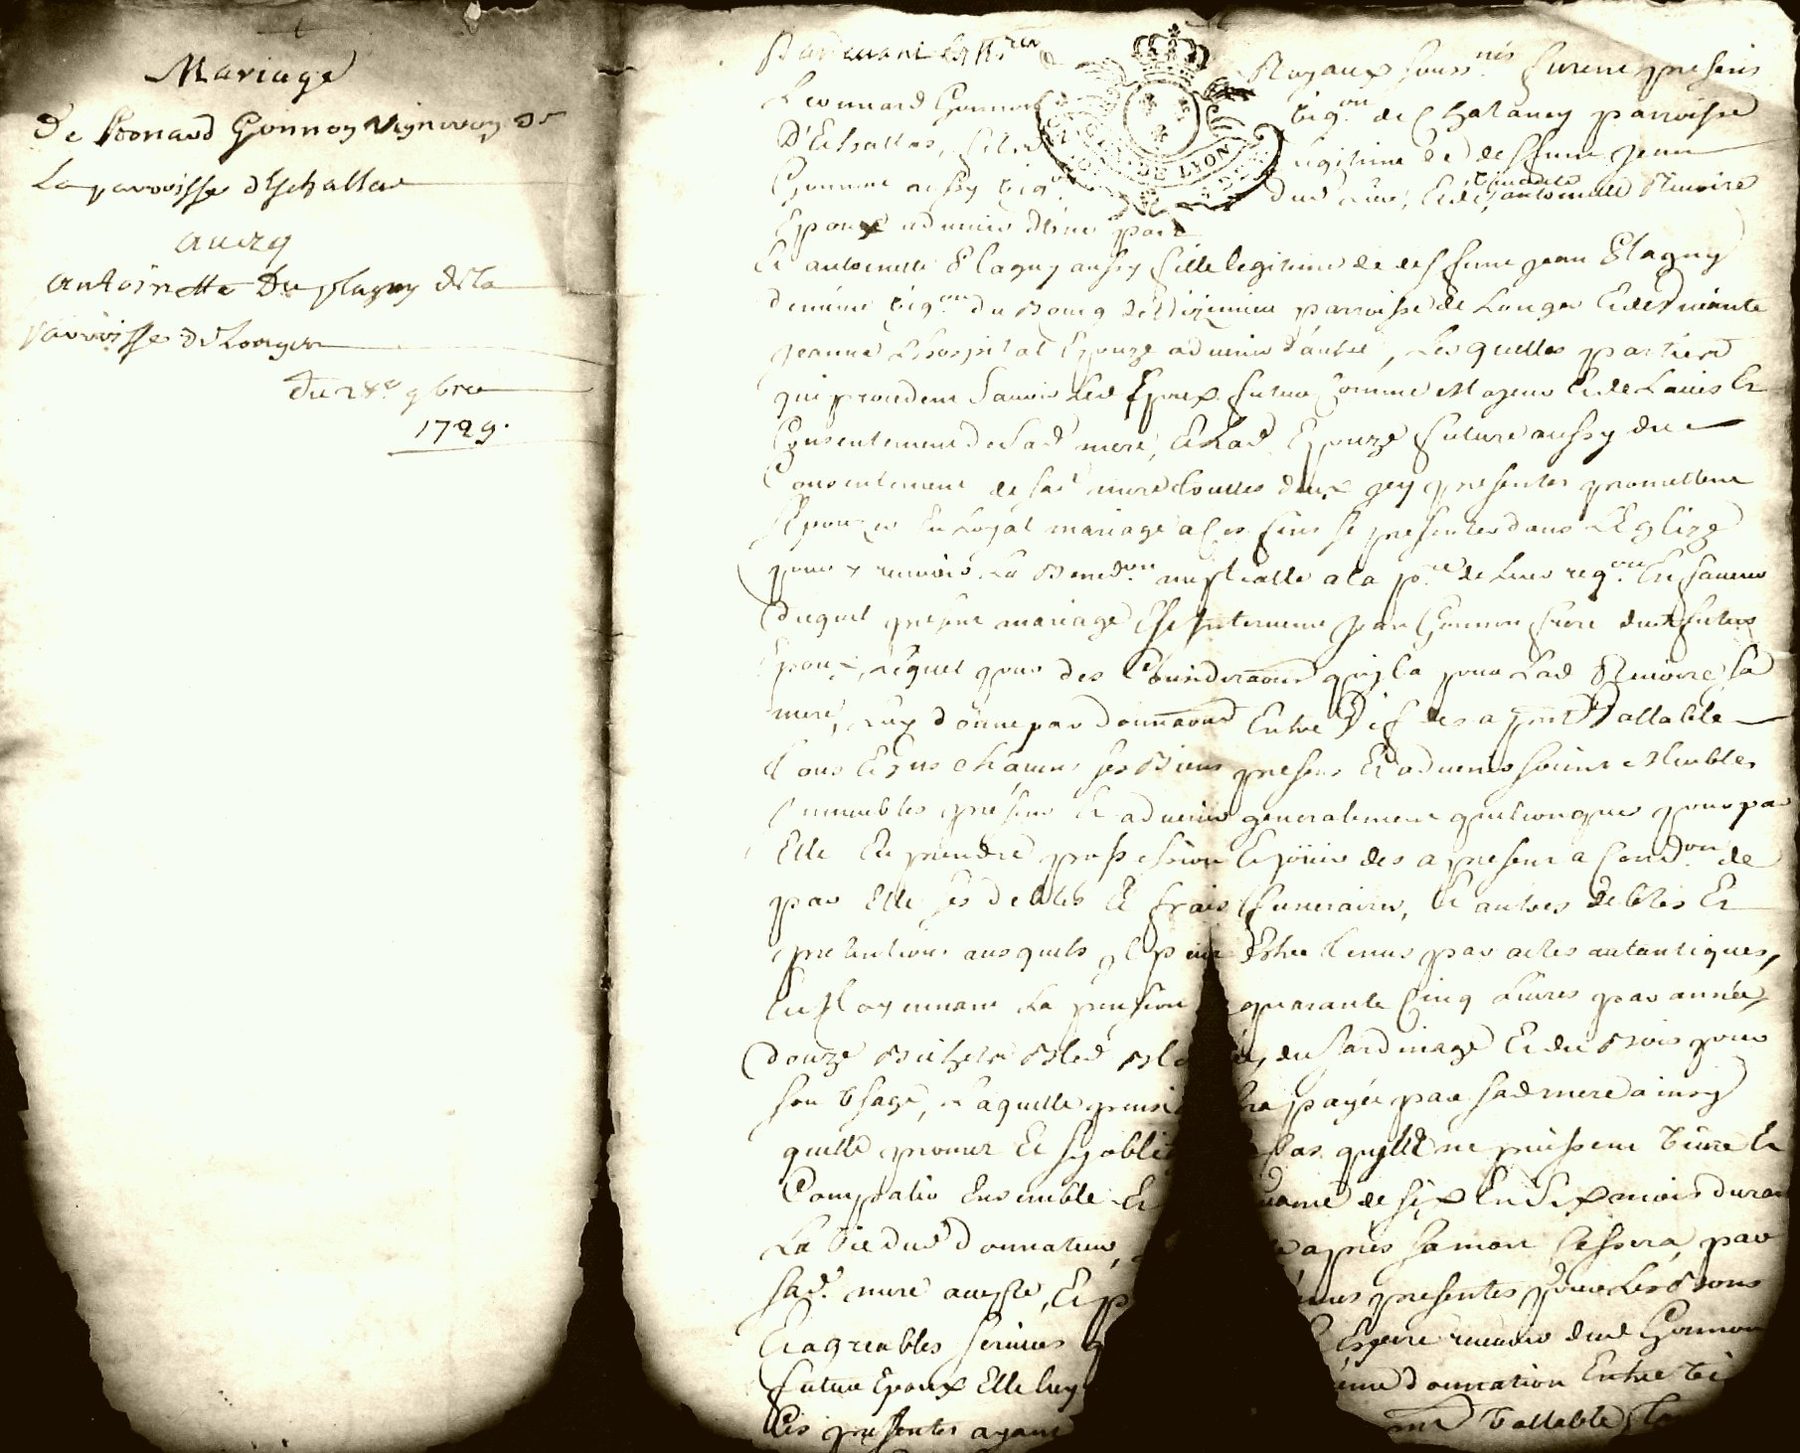 Mariage
De Leonard Gonnon vigneron de
La parroisse d'Echallas
avecq
antoinette Du plagny de la
parroisse de Longes
du 28e 9bre
1729.
Pardevant les Nres Royaux souss.nés furent presens
Leonnard Gonnon vig.on de Chataney parroisse
D'Echallas, fils legitime de deffunt Jean
Gonnon aussy vig.on dud. Lieu, Et de vivante antoinette Rivoire
Epoux advenir d'une part
Et antoinette Plagny aussy fille legitime de deffunt Jean Plagny
vig.on du Bourg de parroisse de Longes Et de vivante
Jeanne L'hospital Epouze advenir d'autre, Lesquelles parties
qui procedent sçavoir led. Epoux futur comme Majeur Et de L'avis Et
Consentement de sad. mere, Et Lad. Epouze future aussy du
Consentement de sad. mere toutes deux icy presentes promettent
s'Epouzer En Loyal mariage a ces fins se presenter dans L'Eglize
pour y recevoir La Bened.on nuptialle a la p.re de Leur req.on En faveur
duquel present mariage s'est intervenu Jean Gonnon frere dud. futur
Epoux, Lequel pour des Considerations qu'il a pour Lad. Rivoire sa
mere, Luy donne par donnation Entre Vifs des a present Vallable
tous Et uns chacuns ses Biens presens Et advenir soient Meubles
immeubles presens Et advenir generalement quelconques pour par
Elle En prendre possession Et joüir des a present a Cond.on de
par Elle ses debtes Et frais funeraires, Et autres debtes Et
pretentions ausquels il peut Estre tenus par actes autantiques,
Et moyennant La pension quarante Cinq Livres par année,
douze Bichets Bled du Jardinage Et du Bois pour
son Usage, Laquelle pensi payée par sad. mere ainsy
quelle promet Et s'y oblig cas qu'ils ne puissent Vivre Et
Compatir Ensemble Et de six En Six mois durant
La Vie dud. donnateur, apres sa mort Cessera, par
sad. mere accepte, Et p presentes pour Les Bons
Et agreables services q Espere recevoir dud. Gonnon
futur Epoux Elle luy donnation Entre Vi
Les presentes ayant Vallable,